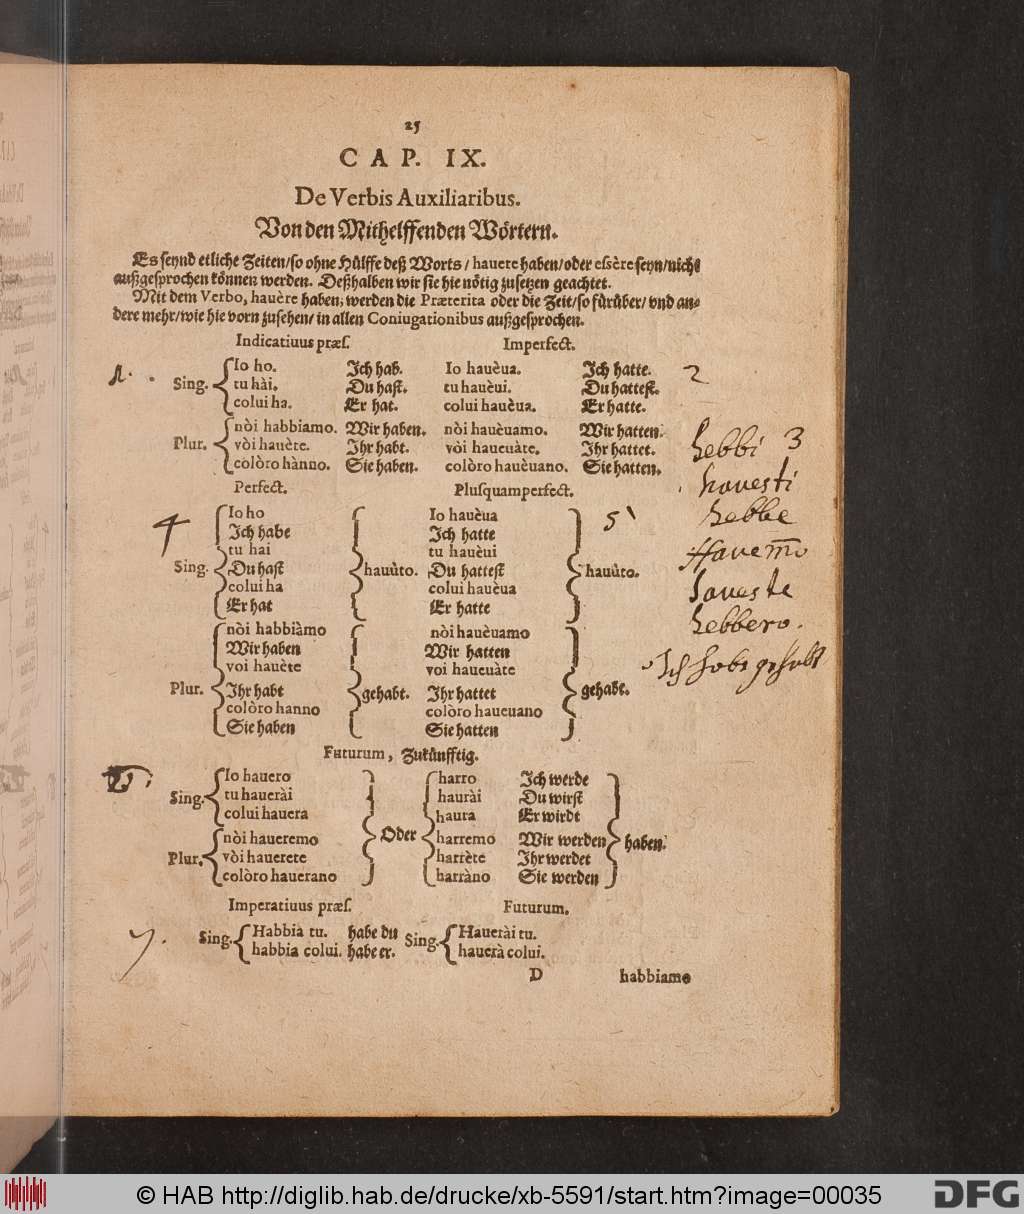 25
CAP. IX.
De Verbis Auxiliaribus.
Von den Mithelffenden Wörtern.
Es seynd etliche Zeiten/so ohne Hülffe deß Worts/ hauere haben/oder essère seyn/nicht
außgesprochen können werden. Deßhalben wir sie hie nötig zusetzen geachtet.
Mit dem Verbo, hauère haben; werden die Præterita oder die Zeit/so fürüber/ vnd an-
dere mehr/wie hie vorn zusehen/ in allen Coniugationibus außgesprochen.
Indicatiuus præs. Imperfect.
1. Sing. Io ho. Ich hab. Io hauèua. Ich hatte. 2
tu hài. Du hast. tu hauèui. Du hattest.
colui ha. Er hat. colui hauèua. Er hatte.
Plur. nòi habbiamo. Wir haben. nòi hauèuamo. Wir hatten.
vòi hauète. Ihr habt. vòi haueuàte. Ihr hattet.
colòro hànno. Sie haben. colòro hauèuano. Sie hatten.
hebbi 3
hauesti
hebbe
Hauemo
haueste
hebbero.
Ich habe gehabt
Perfect. Plusquamperfect.
4 5
Io ho Io hauèua
Ich habe Ich hatte
tu hai tu hauèui
Sing. Du hast hauùto. Du hattest hauùto.
colui ha colui hauèua
Er hat Er hatte
nòi habbiàmo nòi hauèuamo
Wir haben Wir hatten
voi hauète voi haueuàte
Plur. Ihr habt gehabt. Ihr hattet gehabt.
colòro hanno colòro haueuano
Sie haben Sie hatten
Futurum, Zukünfftig.
Io hauero harro Ich werde
Sing. tu hauerài hauràì Du wirst
colui hauera haura Er wirdt
Oder haben.
nòi haueremo harremo Wir werden
Plur. vòi hauerete harrète Ihr werdet
colòro hauerano harràno Sie werden
Imperatiuus præs. Futurum.
7. Sing. Habbia tu. habe du Sing. Hauerài tu.
habbia colui. habe er. hauerà colui.
D habbiamo
© HAB http://diglib.hab.de/drucke/xb-5591/start.htm?image=00035
DFG